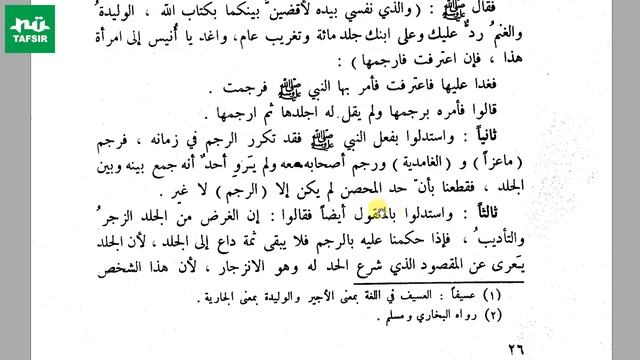 TAFSIR
فقال ﷺ : (والذي نفسي بيده لأقضين بينكما بكتاب الله ، الوليدةُ
والغنمُ ردٌّ عليك وعلى ابنك جلد مائة وتغريب عام، واغد يا أُنيس إلى امرأة
هذا ، فإن اعترفت فارجمها) :
فغدا عليها فاعترفت فأمر بها النبي ﷺ فرجمت .
قالوا فأمره برجمها ولم يقل له اجلدها ثم ارجمها .
ثانياً : واستدلوا بفعل النبي ﷺ فقد تكرر الرجم في زمانه ، فرجم
(ماعزاً) و (الغامدية) ورجم أصحابه معه ولم يَروِ أحدٌ أنه جمع بينه وبين
الجلد ، فقطعنا بأنّ حد المحصن لم يكن إلا (الرجم) لا غير .
ثالثاً : واستدلوا أيضاً فقالوا : إن الغرض من الجلد الزجرُ
والتأديبُ ، فإذا حكمنا عليه بالرجم فلا يبقى ثمة داع إلى الجلد ، لأن الجلد
يَعرى عن المقصود الذي شرع الحد له وهو الانزجار ، لأن هذا الشخص
(١) عسيفاً : العسيف في اللغة بمعنى الأجير والوليدة بمعنى الجارية .
(٢) رواه البخاري ومسلم .
٢٦